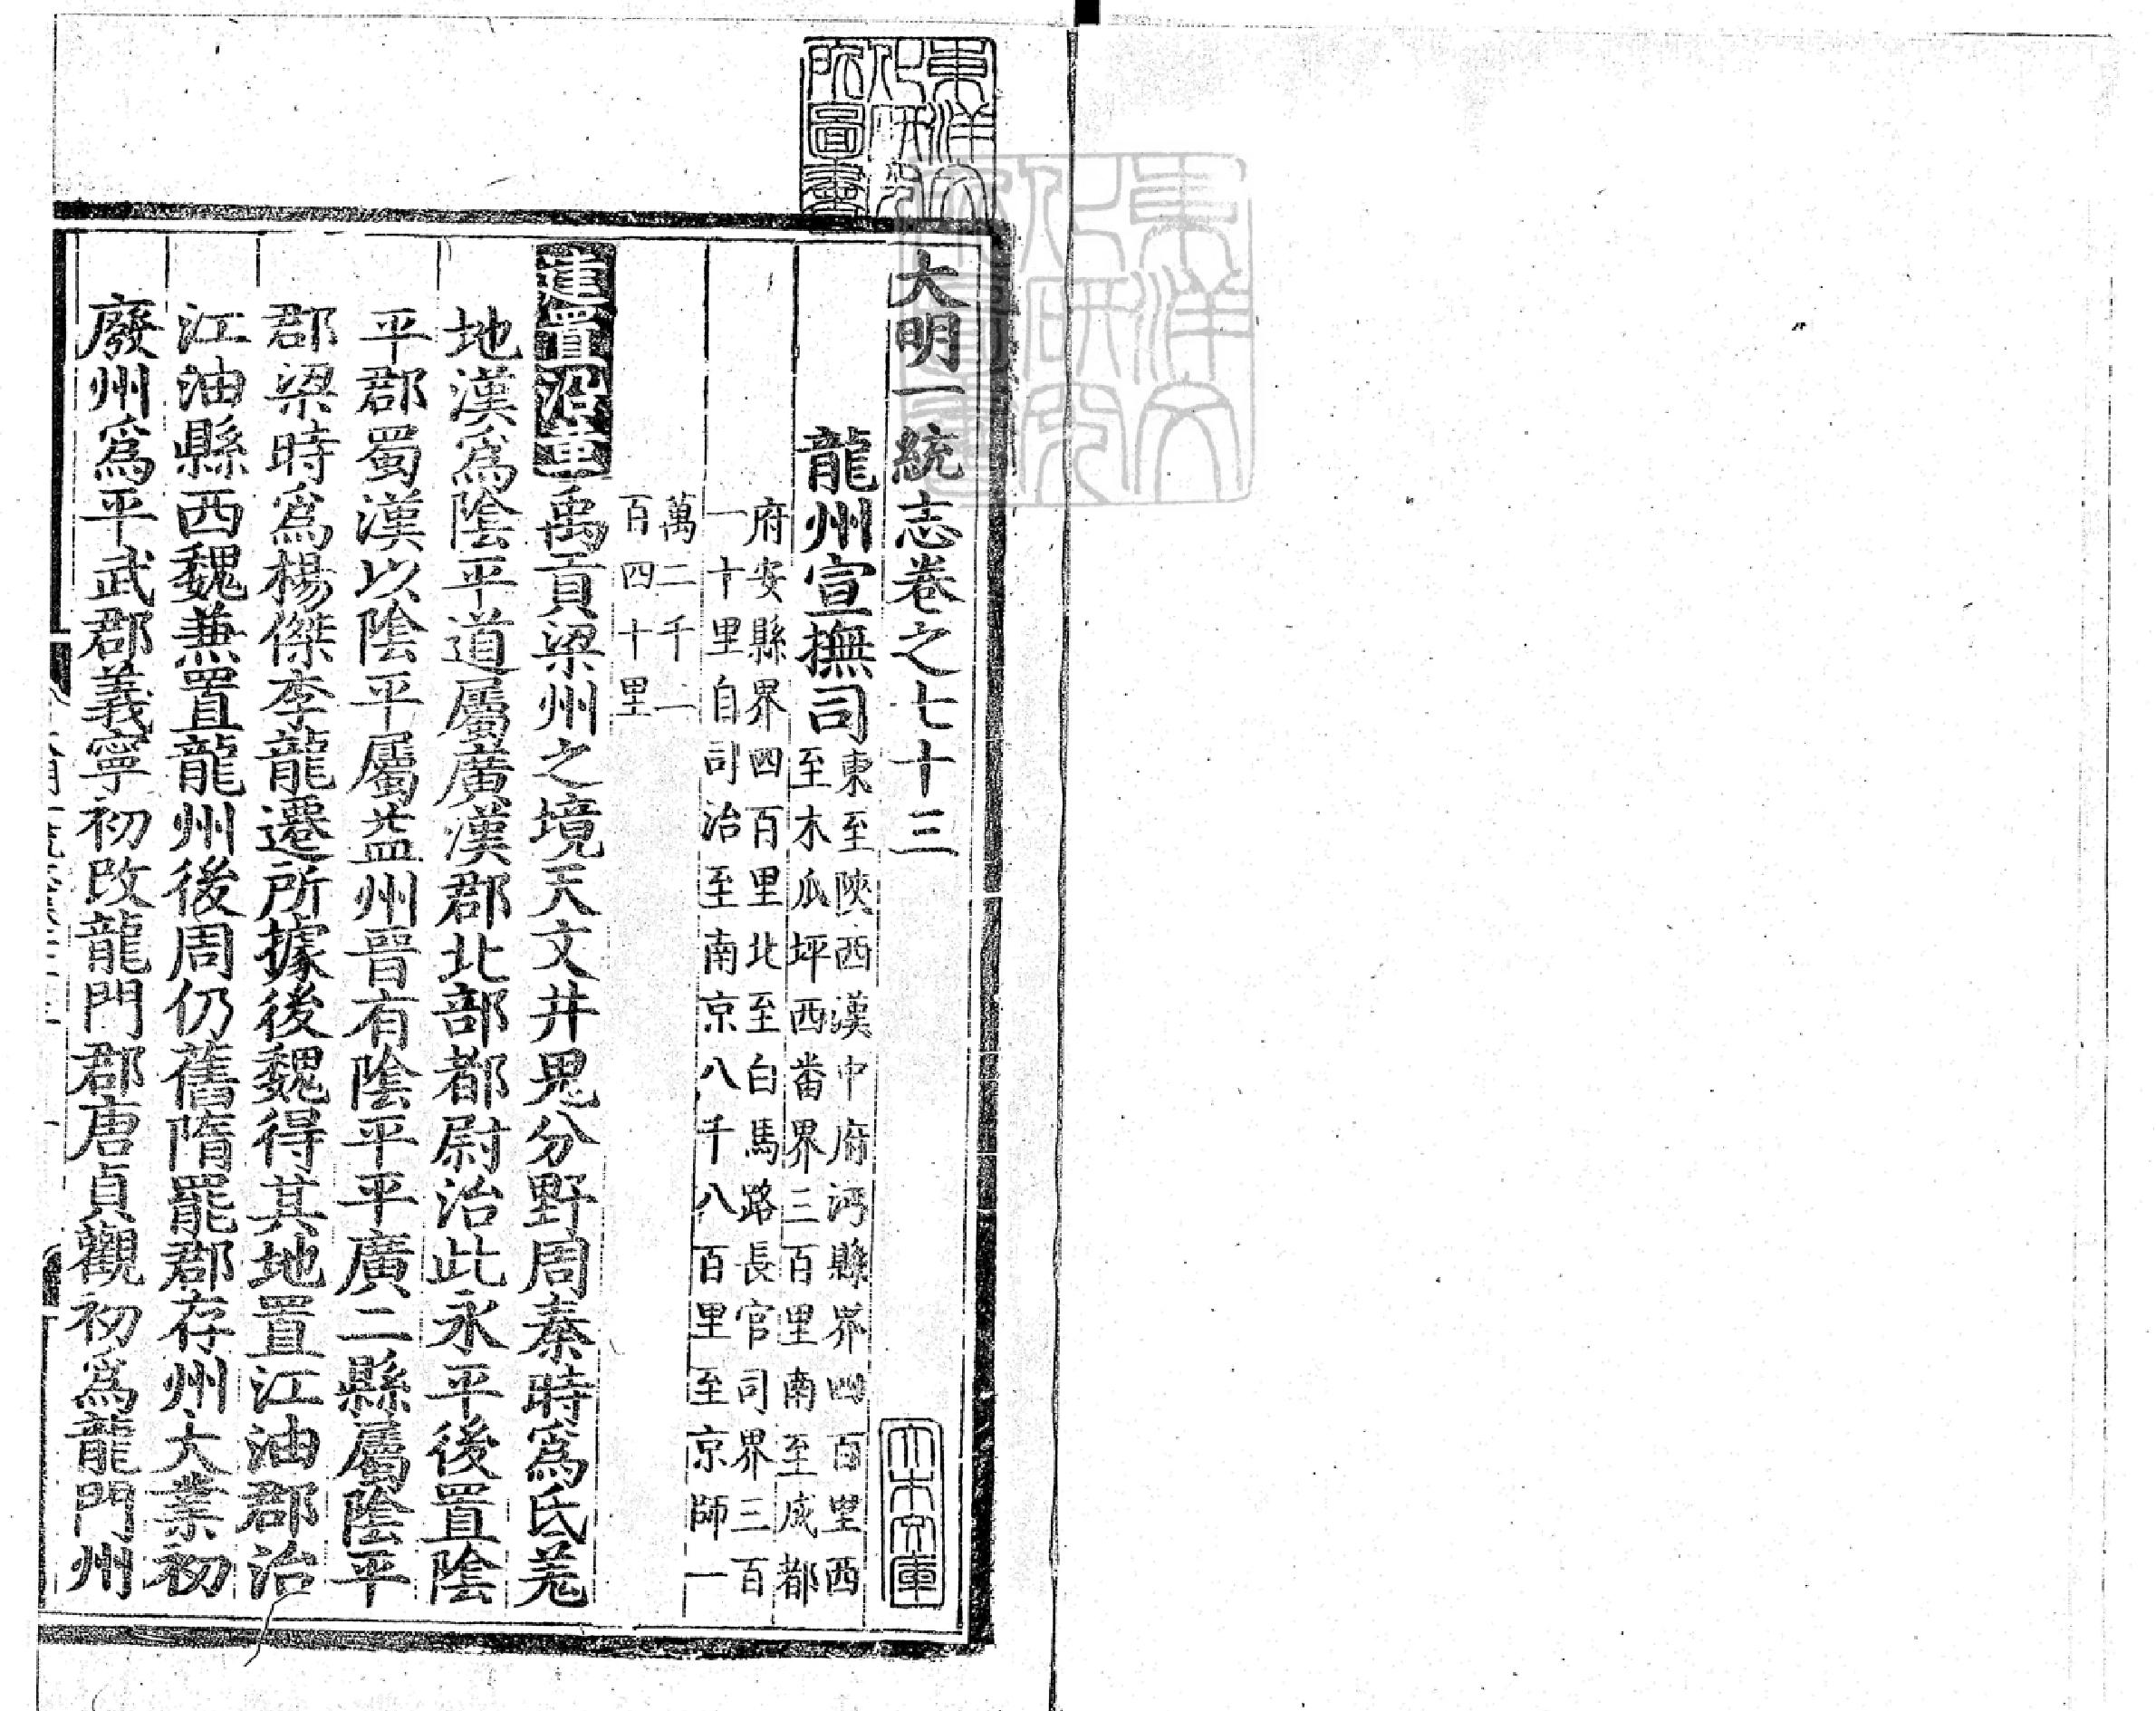 東洋文化研究所圖書
大明一統志卷之七十三
龍州宣撫司
東至陝西漢中府沔縣界四百里西
至木瓜坪西番界三百里南至成都
府安縣界四百里北至白馬路長官司界三百
一十里自司治至南京八千八百里至京師一
萬二千二
百四十里
建置沿革禹貢梁州之境天文井鬼分野周秦時爲氐羌
地漢爲陰平道屬廣漢郡北部都尉治此永平後置陰
平郡蜀漢以陰平屬益州晉有陰平平廣二縣屬陰平
郡梁時爲楊傑李龍遷所據後魏得其地置江油郡治
江油縣西魏兼置龍州後周仍舊隋罷郡存州大業初
廢州爲平武郡義寧初改龍門郡唐貞觀初爲龍門州
大木文庫